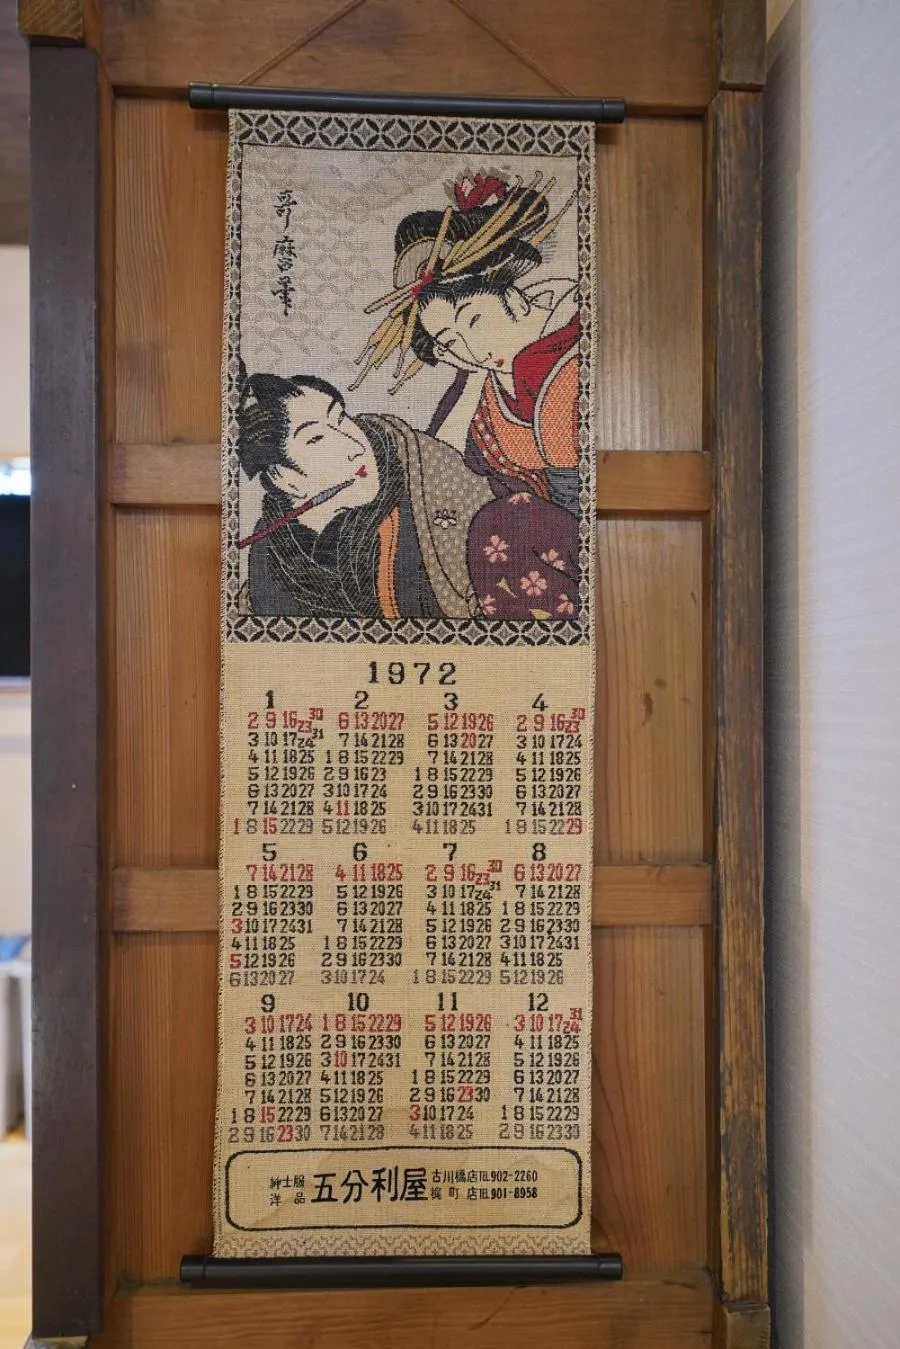 哥麿筆
1972
1
2 9 16 23 30
3 10 17 24 31
4 11 18 25
5 12 19 26
6 13 20 27
7 14 21 28
1 8 15 22 29
2
6 13 20 27
7 14 21 28
1 8 15 22 29
2 9 16 23
3 10 17 24
4 11 18 25
5 12 19 26
3
5 12 19 26
6 13 20 27
7 14 21 28
1 8 15 22 29
2 9 16 23 30
3 10 17 24 31
4 11 18 25
4
2 9 16 23 30
3 10 17 24
4 11 18 25
5 12 19 26
6 13 20 27
7 14 21 28
1 8 15 22 29
5
7 14 21 28
1 8 15 22 29
2 9 16 23 30
3 10 17 24 31
4 11 18 25
5 12 19 26
6 13 20 27
6
4 11 18 25
5 12 19 26
6 13 20 27
7 14 21 28
1 8 15 22 29
2 9 16 23 30
3 10 17 24
7
2 9 16 23 30
3 10 17 24 31
4 11 18 25
5 12 19 26
6 13 20 27
7 14 21 28
1 8 15 22 29
8
6 13 20 27
7 14 21 28
1 8 15 22 29
2 9 16 23 30
3 10 17 24 31
4 11 18 25
5 12 19 26
9
3 10 17 24
4 11 18 25
5 12 19 26
6 13 20 27
7 14 21 28
1 8 15 22 29
2 9 16 23 30
10
1 8 15 22 29
2 9 16 23 30
3 10 17 24 31
4 11 18 25
5 12 19 26
6 13 20 27
7 14 21 28
11
5 12 19 26
6 13 20 27
7 14 21 28
1 8 15 22 29
2 9 16 23 30
3 10 17 24
4 11 18 25
12
3 10 17 24 31
4 11 18 25
5 12 19 26
6 13 20 27
7 14 21 28
1 8 15 22 29
2 9 16 23 30
紳士服
洋品
五分利屋
古川橋店℡902-2260
梶町店℡901-8958